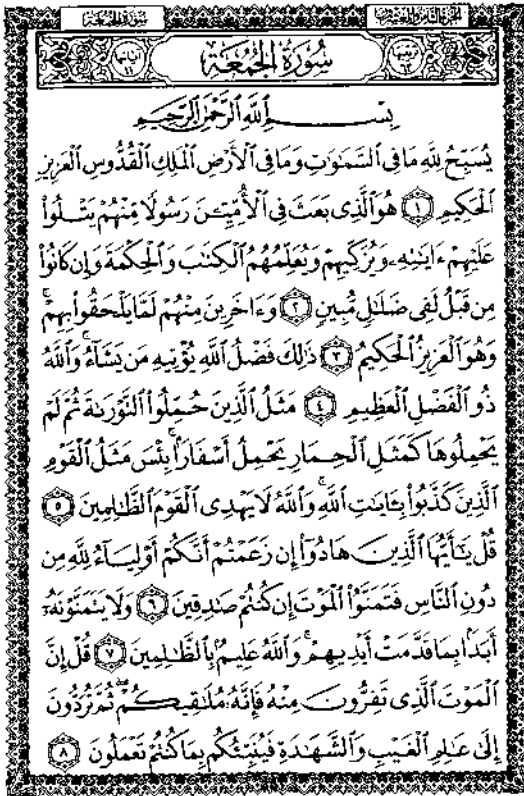 سُورَةُ الجُمُعَة
الجزء الثامن والعشرون
سُورَةُ الجُمُعَةِ
بِسْمِ ٱللَّهِ ٱلرَّحْمَٰنِ ٱلرَّحِيمِ
يُسَبِّحُ لِلَّهِ مَا فِى ٱلسَّمَٰوَٰتِ وَمَا فِى ٱلْأَرْضِ ٱلْمَلِكِ ٱلْقُدُّوسِ ٱلْعَزِيزِ
ٱلْحَكِيمِ ١ هُوَ ٱلَّذِى بَعَثَ فِى ٱلْأُمِّيِّـۧنَ رَسُولًا مِّنْهُمْ يَتْلُوا۟
عَلَيْهِمْ ءَايَٰتِهِۦ وَيُزَكِّيهِمْ وَيُعَلِّمُهُمُ ٱلْكِتَٰبَ وَٱلْحِكْمَةَ وَإِن كَانُوا۟
مِن قَبْلُ لَفِى ضَلَٰلٍ مُّبِينٍ ٢ وَءَاخَرِينَ مِنْهُمْ لَمَّا يَلْحَقُوا۟ بِهِمْ ۚ
وَهُوَ ٱلْعَزِيزُ ٱلْحَكِيمُ ٣ ذَٰلِكَ فَضْلُ ٱللَّهِ يُؤْتِيهِ مَن يَشَآءُ ۚ وَٱللَّهُ
ذُو ٱلْفَضْلِ ٱلْعَظِيمِ ٤ مَثَلُ ٱلَّذِينَ حُمِّلُوا۟ ٱلتَّوْرَىٰةَ ثُمَّ لَمْ
يَحْمِلُوهَا كَمَثَلِ ٱلْحِمَارِ يَحْمِلُ أَسْفَارًۢا ۚ بِئْسَ مَثَلُ ٱلْقَوْمِ
ٱلَّذِينَ كَذَّبُوا۟ بِـَٔايَٰتِ ٱللَّهِ ۚ وَٱللَّهُ لَا يَهْدِى ٱلْقَوْمَ ٱلظَّٰلِمِينَ ٥
قُلْ يَٰٓأَيُّهَا ٱلَّذِينَ هَادُوٓا۟ إِن زَعَمْتُمْ أَنَّكُمْ أَوْلِيَآءُ لِلَّهِ مِن
دُونِ ٱلنَّاسِ فَتَمَنَّوُا۟ ٱلْمَوْتَ إِن كُنتُمْ صَٰدِقِينَ ٦ وَلَا يَتَمَنَّوْنَهُۥٓ
أَبَدًۢا بِمَا قَدَّمَتْ أَيْدِيهِمْ ۚ وَٱللَّهُ عَلِيمٌۢ بِٱلظَّٰلِمِينَ ٧ قُلْ إِنَّ
ٱلْمَوْتَ ٱلَّذِى تَفِرُّونَ مِنْهُ فَإِنَّهُۥ مُلَٰقِيكُمْ ۖ ثُمَّ تُرَدُّونَ
إِلَىٰ عَٰلِمِ ٱلْغَيْبِ وَٱلشَّهَٰدَةِ فَيُنَبِّئُكُم بِمَا كُنتُمْ تَعْمَلُونَ ٨